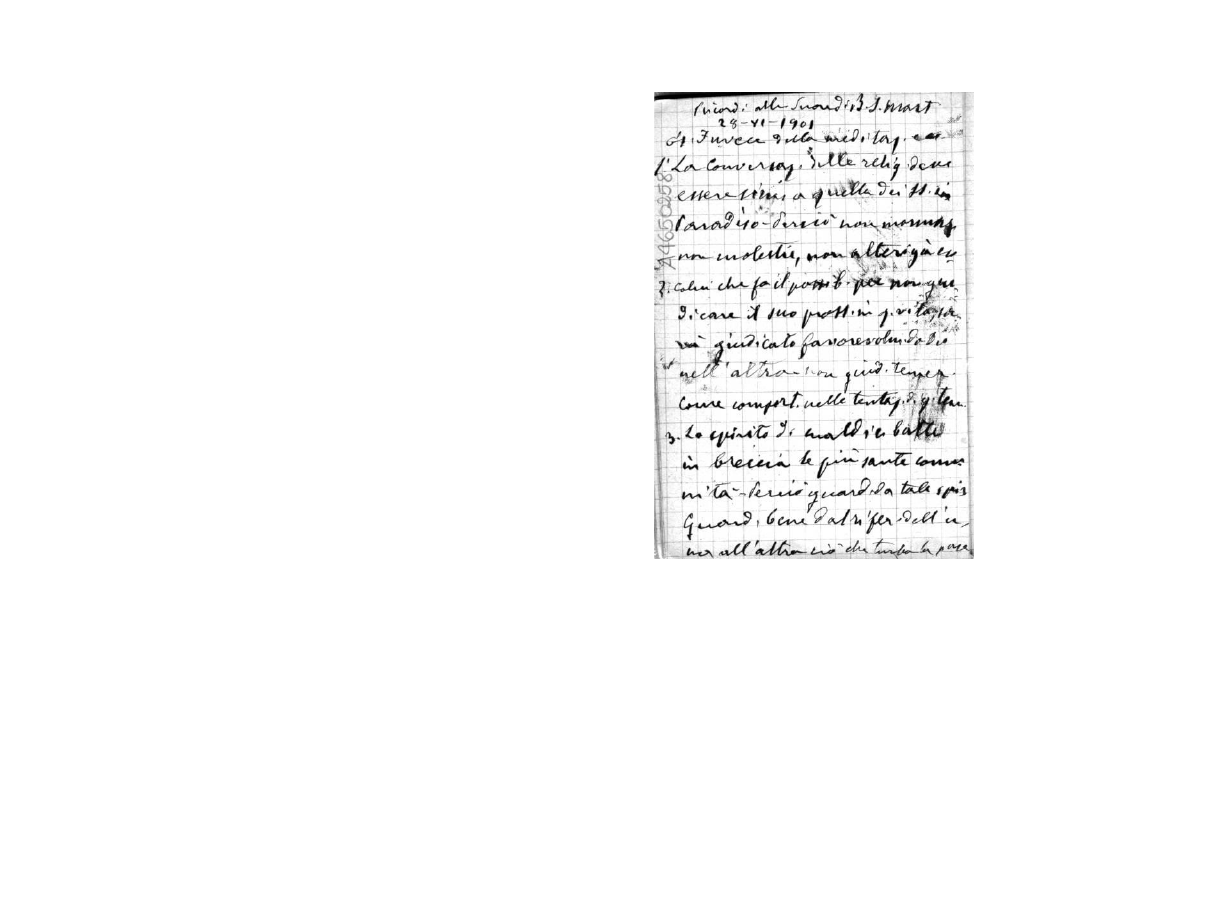 Ricordi alle Suore di B. S. Mart
28-VI-1901
Invece della meditaz.
1. La conversaz. delle relig. deve
essere simi. a quella dei SS. in
Paradiso - Perciò non mormoraz.
non molestie, non alterigia ecc
2. Colui che fa il possib. per non giu
dicare il suo pross. in q. vita, sa
rà giudicato favorevolm. da Dio
nell'altra - non giud. temer.
Come comport. nelle tentaz. di g. tem.
3. Lo spirito di maldic. batte
in breccia le più sante comu
nità - Perciò guard. da tale spir
Guard. bene dal rifer. dell'u
na all'altra ciò che turba la pace
A4650258